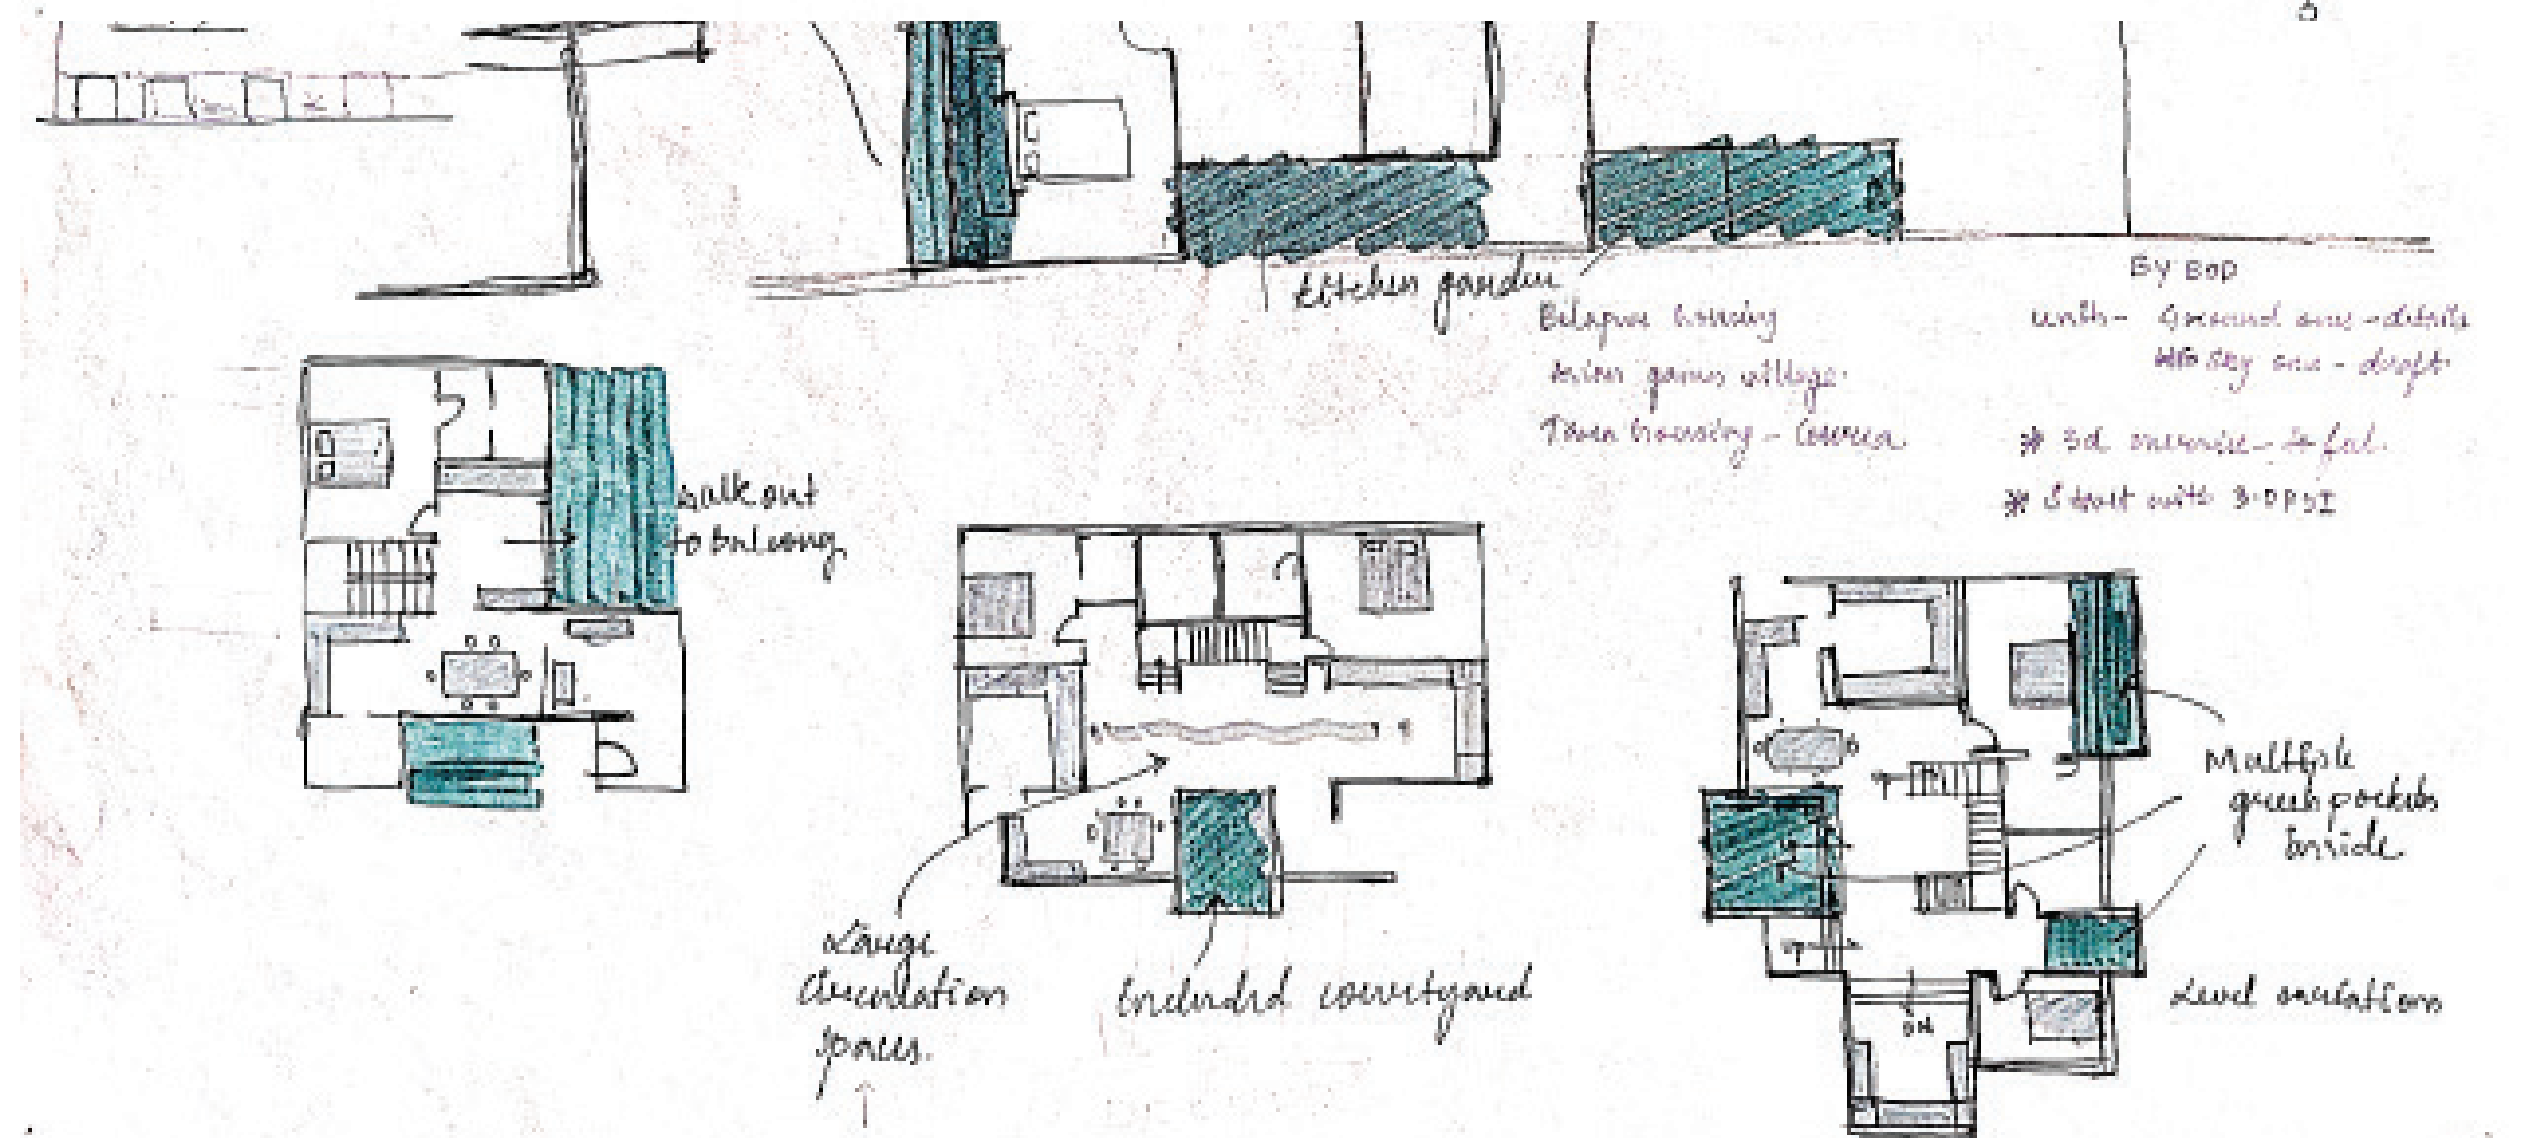 kitchen garden
By EOD
Belapur housing
Asian games village
Town housing - Correa
units - Ground one - details
sky one - draft
* 3d
* Start with 3
walk out
to balcony
Large
Circulation
spaces.
Included courtyard
Multiple
green pockets
Inside
UP
UP
DN
Level